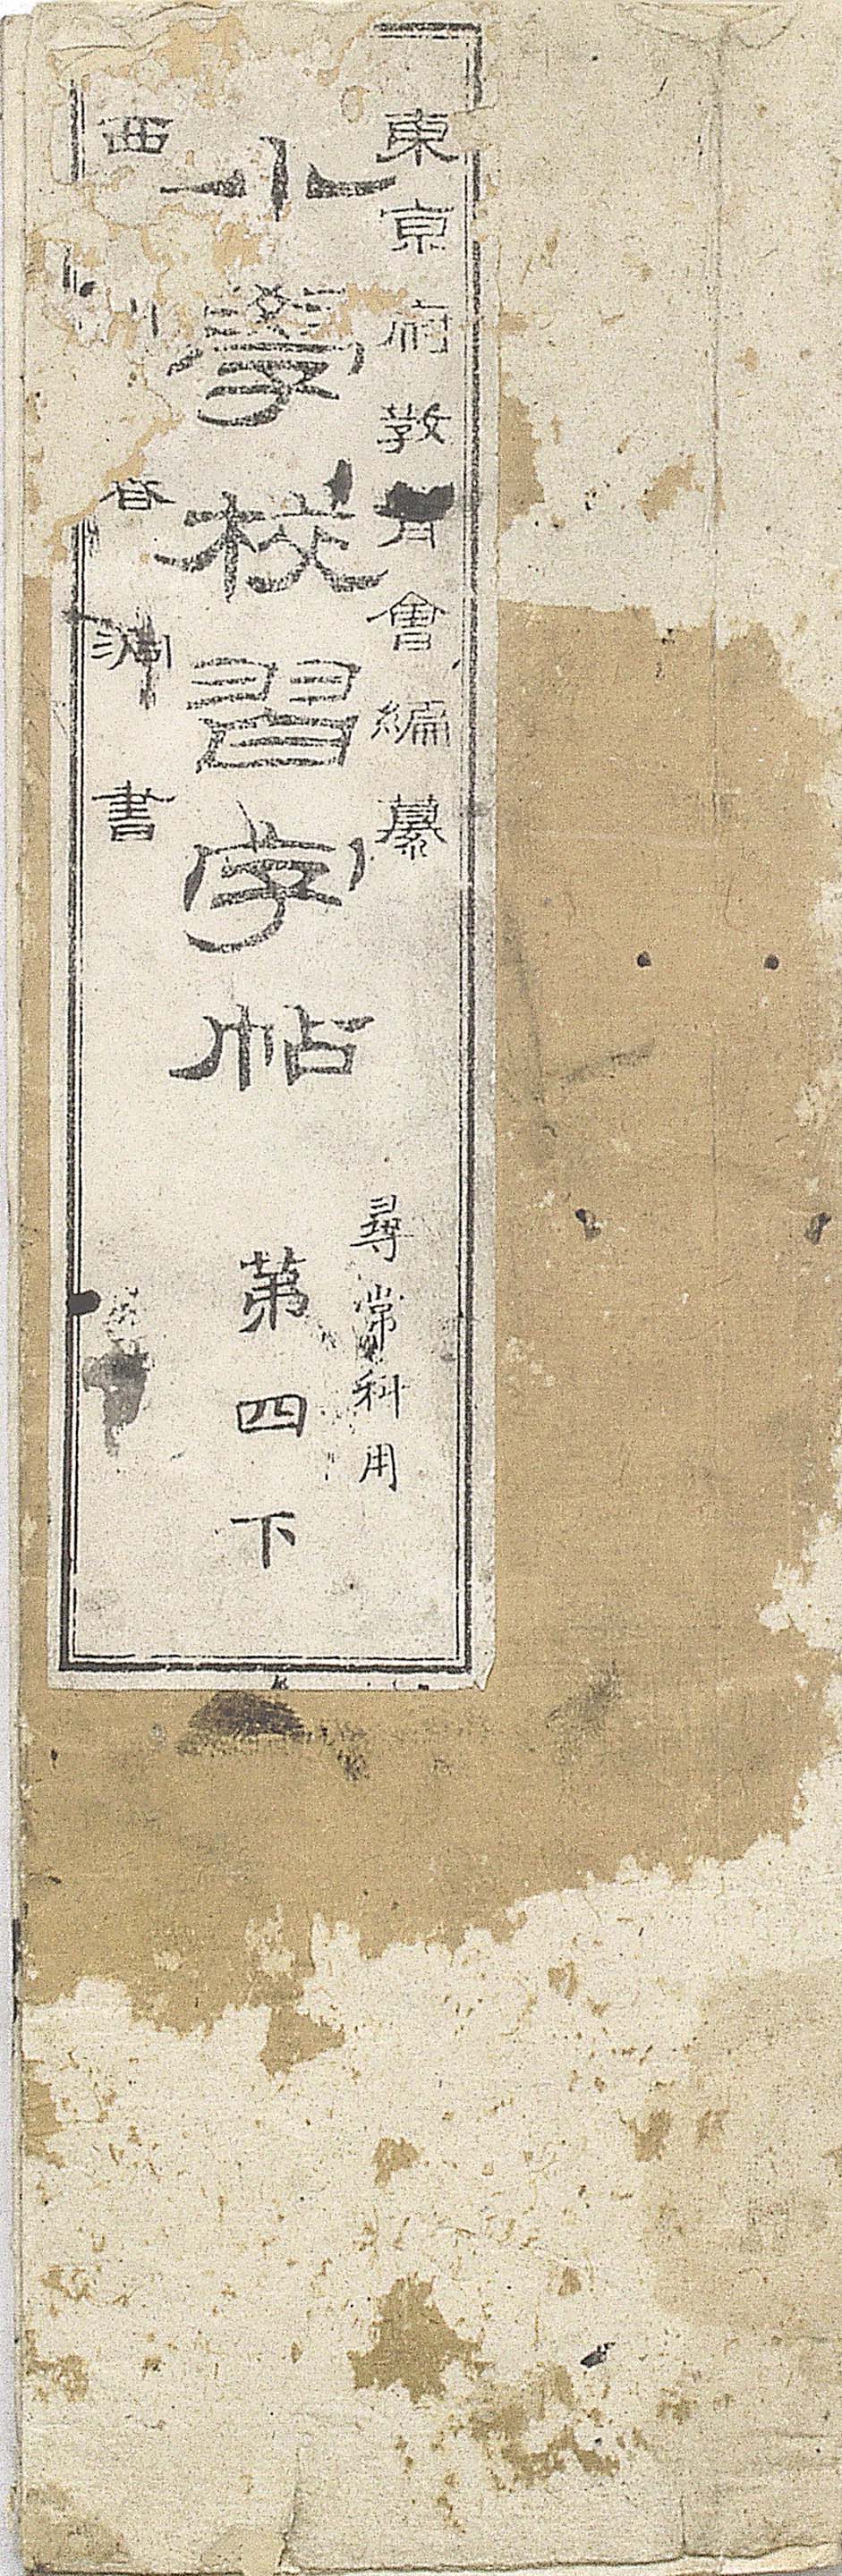 東京府敎育會編纂
小學校習字帖
尋常科用
第四下
西川春洞書